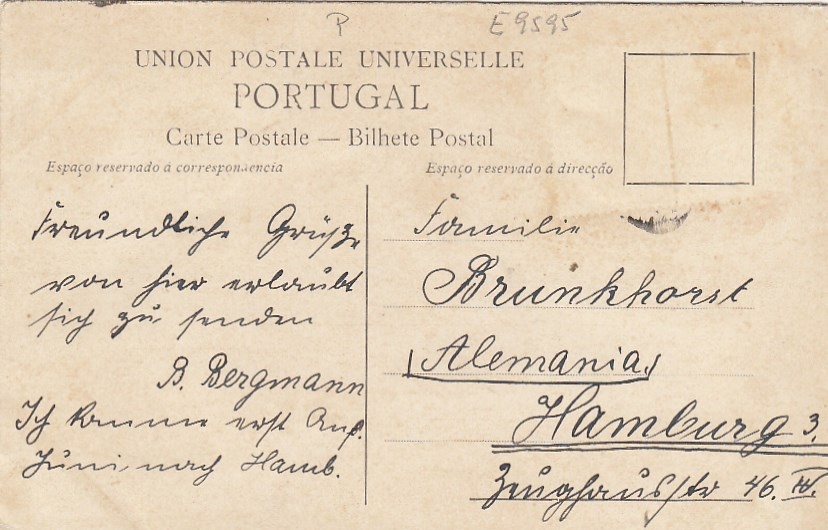 P
E 9595
UNION POSTALE UNIVERSELLE
PORTUGAL
Carte Postale — Bilhete Postal
Espaço reservado á correspondencia
Espaço reservado á direcção
Freundliche Grüße
von hier erlaubt
sich zu senden
B. Bergmann
Ich komme erst Anf.
Juni nach Hamb.
Familie
Brunkhorst
(Alemania)
Hamburg 3.
Zeughausstr 46. IV.